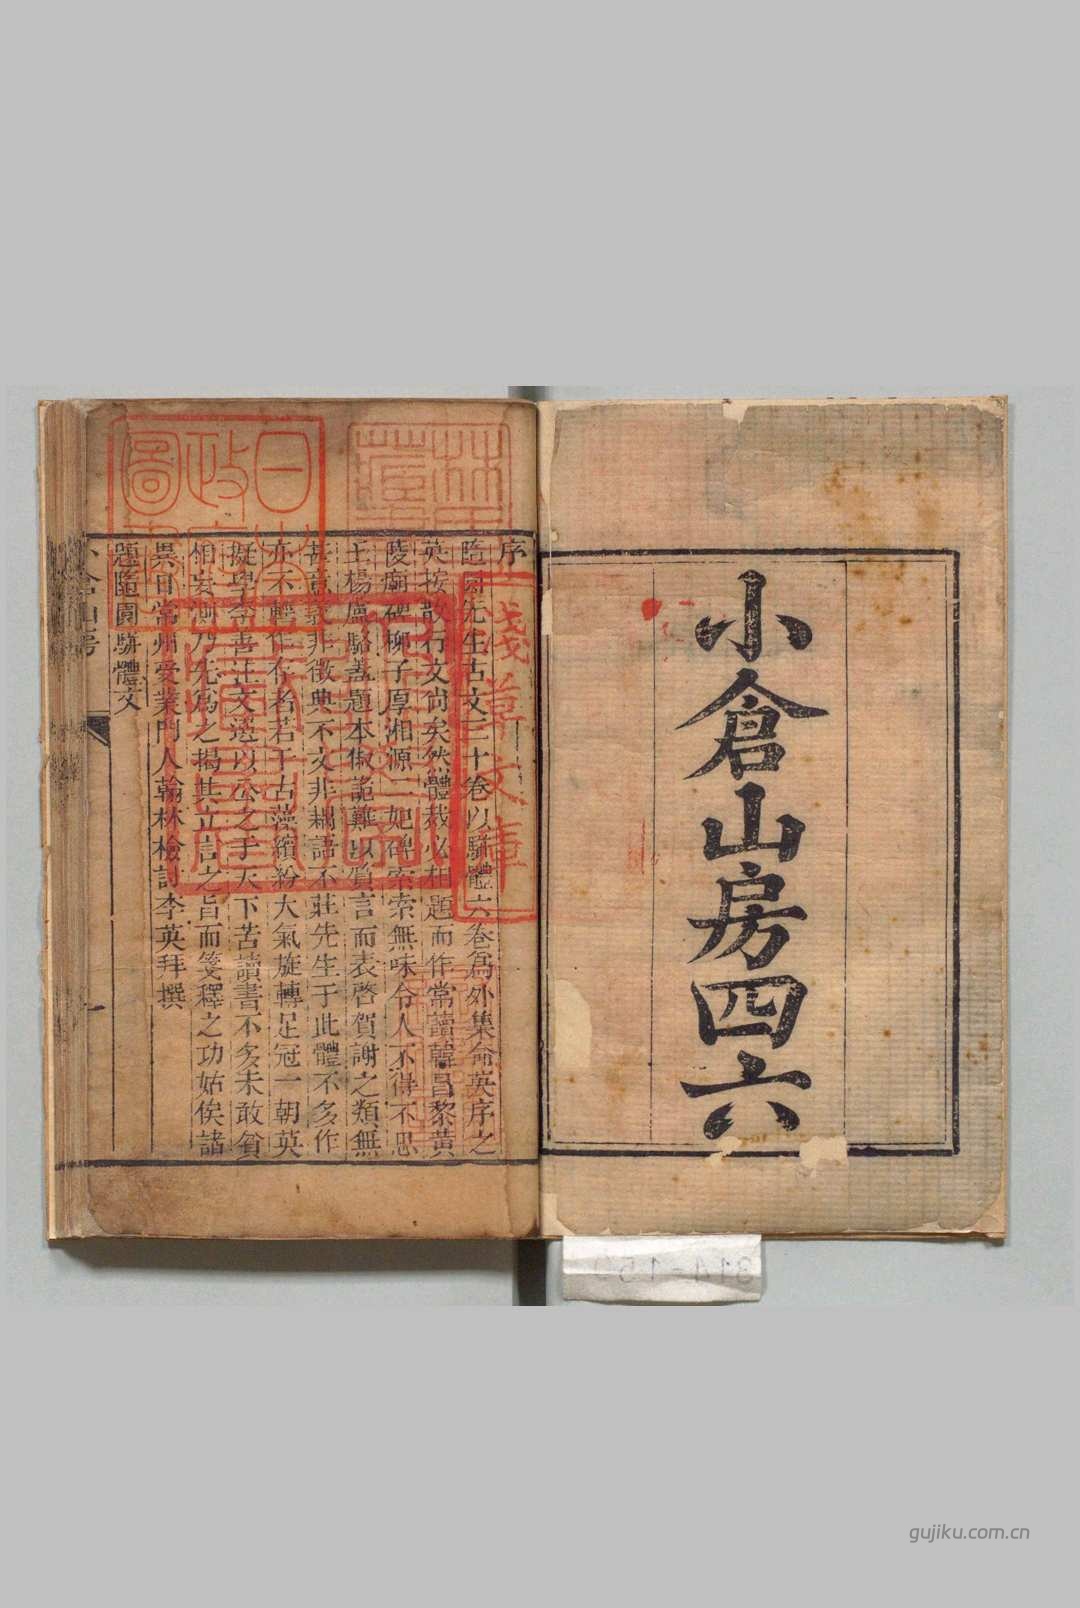 小倉山房四六
序
隨園先生古文三十卷以駢體六卷為外集命英序之
英按散行文尚矣然體裁必相題而作常讀韓昌黎黃
陵廟碑柳子厚湘源二妃碑索索無味令人不得不思
王楊盧駱蓋題本俶詭難以質言而表啓賀謝之類無
甚意義非徵典不文非耦語不莊先生于此體不多作
亦不輕作存者若干古藻繽紛大氣旋轉足冠一朝英
擬學李善註文選以公之于天下苦讀書不多未敢貿
相妄測乃先為之揭其立言之旨而箋釋之功姑俟諸
異日常州受業門人翰林檢討李英拜撰
題隨園駢體文
小倉山房
一
錢恂文庫
日本政府圖書
814-15
gujiku.com.cn